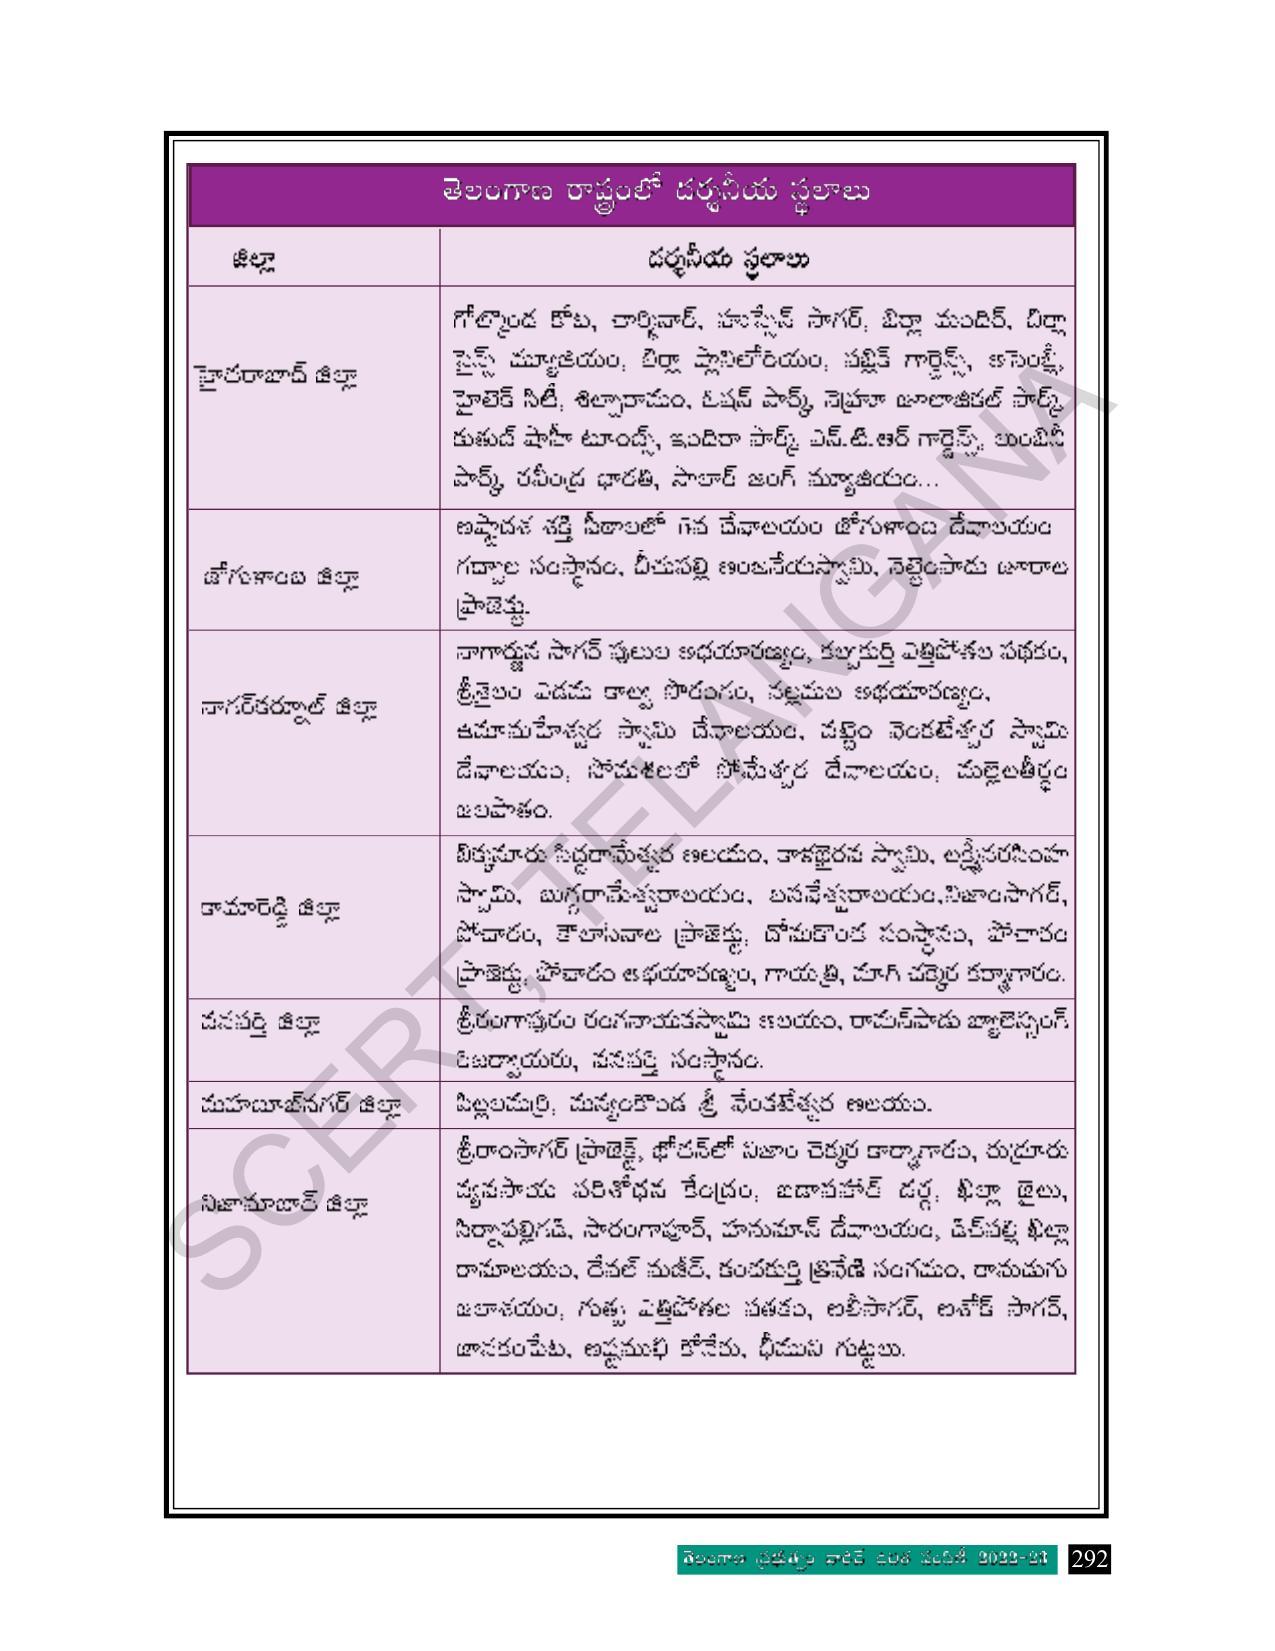 తెలంగాణ రాష్ట్రంలో దర్శనీయ స్థలాలు
జిల్లా
దర్శనీయ స్థలాలు
హైదరాబాద్ జిల్లా
గోల్కొండ కోట, చార్మినార్, హుస్సేన్ సాగర్, బిర్లా మందిర్, బిర్లా
సైన్స్ మ్యూజియం, బిర్లా ప్లానిటోరియం, పబ్లిక్ గార్డెన్స్, అసెంబ్లీ,
హైటెక్ సిటీ, శిల్పారామం, ఓషన్ పార్క్, నెహ్రూ జూలాజికల్ పార్క్
కుతుబ్ షాహీ టూంబ్స్, ఇందిరా పార్క్ ఎన్.టి.ఆర్ గార్డెన్స్, లుంబినీ
పార్క్, రవీంద్ర భారతి, సాలార్ జంగ్ మ్యూజియం...
జోగుళాంబ జిల్లా
అష్టాదశ శక్తి పీఠాలలో దేవాలయం జోగుళాంబ దేవాలయం
గద్వాల సంస్థానం, బీచుపల్లి ఆంజనేయస్వామి, నెట్టెంపాడు జూరాల
ప్రాజెక్టు.
నాగర్‌కర్నూల్ జిల్లా
నాగార్జున సాగర్ పులుల అభయారణ్యం, కల్వకుర్తి ఎత్తిపోతల పథకం,
శ్రీశైలం ఎడమ కాల్వ సొరంగం, నల్లమల అభయారణ్యం,
ఉమామహేశ్వర స్వామి దేవాలయం, వట్టెం వెంకటేశ్వర స్వామి
దేవాలయం, సోమశిలలో సోమేశ్వర దేవాలయం, మల్లెలతీర్థం
జలపాతం.
కామారెడ్డి జిల్లా
బిక్కనూరు సిద్ధరామేశ్వర ఆలయం, కాళభైరవ స్వామి, లక్ష్మీనరసింహ
స్వామి, బుగ్గరామేశ్వరాలయం, నిజాంసాగర్,
పోచారం, కౌలాసనాల ప్రాజెక్టు, దోమకొండ సంస్థానం, పోచారం
ప్రాజెక్టు, పోచారం అభయారణ్యం, గాయత్రి, మాగి చక్కెర కర్మాగారం.
వనపర్తి జిల్లా
శ్రీరంగాపురం రంగనాయకస్వామి ఆలయం, రామన్‌పాడు బ్యాలెన్సింగ్
రిజర్వాయరు, వనపర్తి సంస్థానం.
మహబూబ్‌నగర్ జిల్లా
పిల్లలమర్రి, మన్యంకొండ శ్రీ వేంకటేశ్వర ఆలయం.
నిజామాబాద్ జిల్లా
శ్రీరాంసాగర్ ప్రాజెక్ట్, బోధన్‌లో నిజాం చెక్కర కార్మాగారం, రుద్రూరు
వ్యవసాయ పరిశోధన కేంద్రం, బడాపహాడ్ దర్గ, ఖిల్లా జైలు,
సిర్నాపల్లిగడి, సారంగాపూర్, హనుమాన్ దేవాలయం, డిచ్‌పల్లి ఖిల్లా
రామాలయం, కందకుర్తి త్రివేణి సంగమం, రామడుగు
జలాశయం, గుత్ప ఎత్తిపోతల పతకం, అలీసాగర్, అశోక్ సాగర్,
జానకంపేట, అష్టముఖి కోనేరు, భీముని గుట్టలు.
SCERT, TELANGANA
తెలంగాణ ప్రభుత్వం వారిచే ఉచిత పంపిణీ 2022-23 292